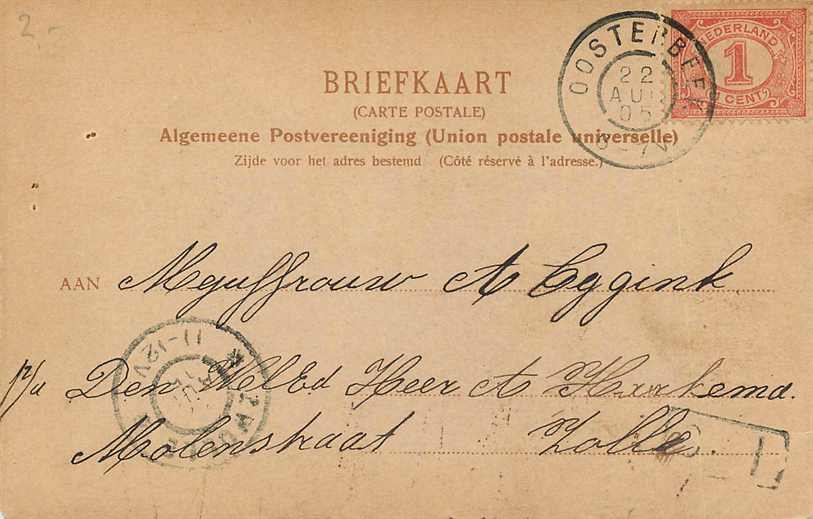 2.-
NEDERLAND
1
CENT
OOSTERBEEK
22
AUG
05
6-7V
BRIEFKAART
(CARTE POSTALE)
Algemeene Postvereeniging (Union postale universelle)
Zijde voor het adres bestemd (Côté réservé à l'adresse.)
AAN Mejuffrouw A Eggink
11-12V
AUG
p/a Den WelEd Heer A Harkema.
Molenstraat Zolle.
1